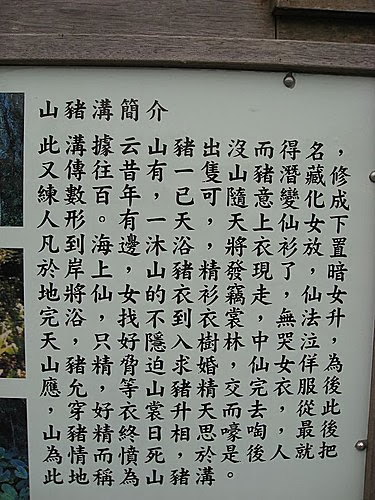 山豬溝簡介
此溝據云山豬出沒而得名,
又傳往昔有一隻山豬潛藏修
練數百年,已可隨意變化成
人形。有一天,天上仙女下
凡到海邊沐浴,將衣衫放置
於岸上,山豬精發現了,暗
地將仙女的衣衫竊走,仙女
完浴,找不到衣裳無法升
天,只好隱入樹林中哭泣,
山豬精脅迫求婚,仙女佯為
應允,等山豬精交完衣服後
,穿好衣裳升天而去,從此
山豬精終日相思嚎啕,最後
為情而憤死,於是後人就把
此地稱為山豬溝。